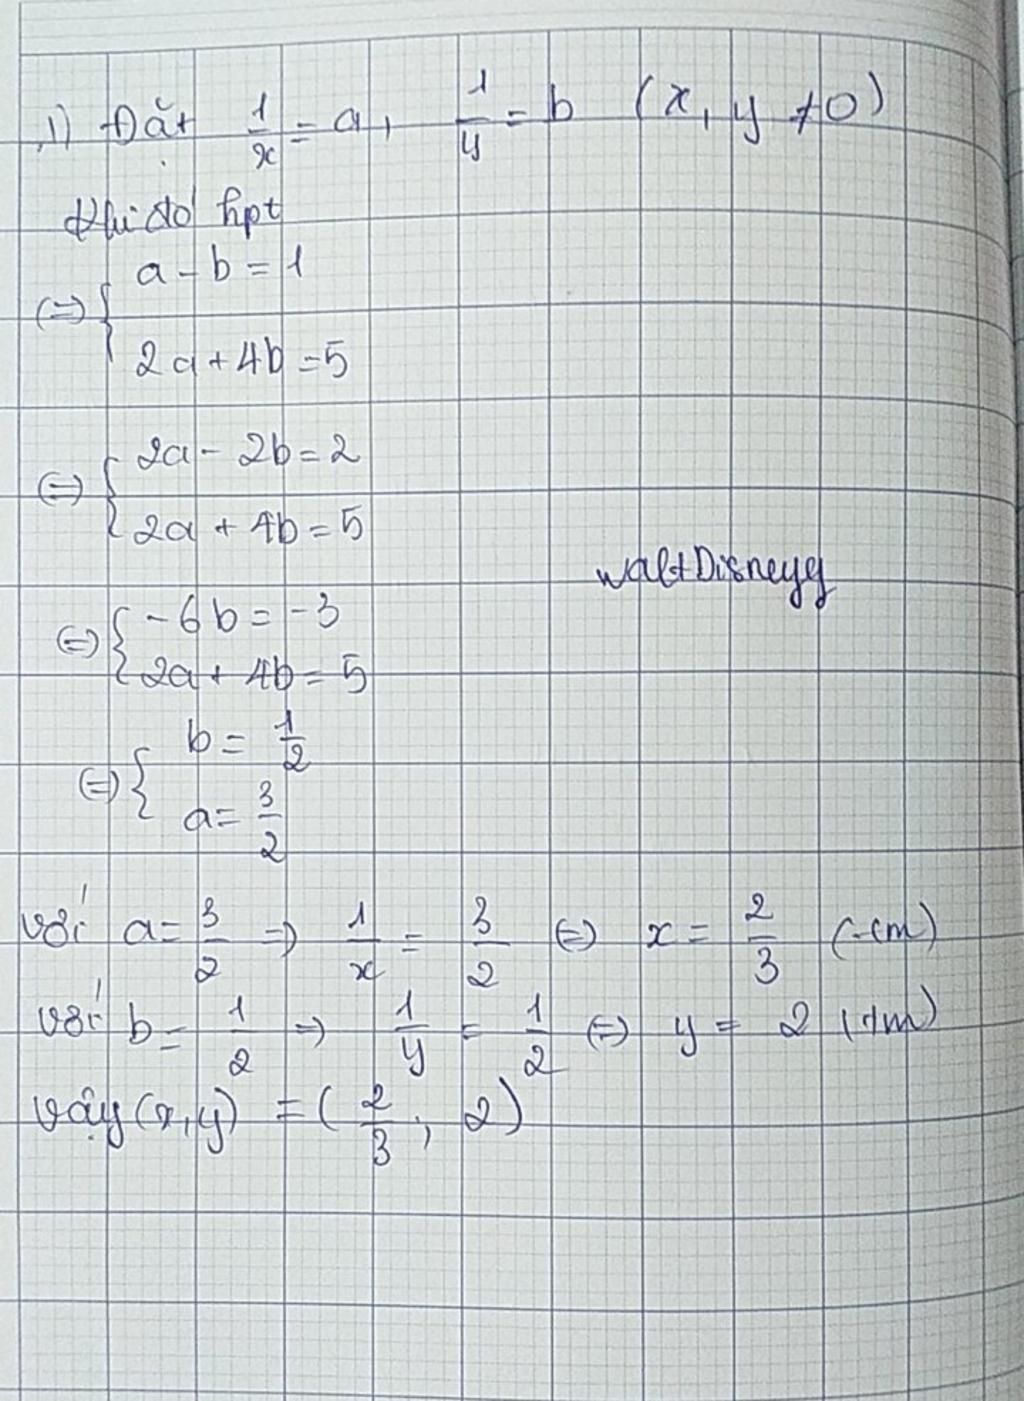 1) Đặt 1/x = a, 1/y = b (x, y ≠ 0)
Khi đó hpt
(=) { a - b = 1
2a + 4b = 5
(=) { 2a - 2b = 2
2a + 4b = 5
waltDisneyy
(=) { -6b = -3
2a + 4b = 5
(=) { b = 1/2
a = 3/2
với a = 3/2 => 1/x = 3/2 (=) x = 2/3 (tm)
với b = 1/2 => 1/y = 1/2 (=) y = 2 (tm)
vậy (x, y) = (2/3; 2)